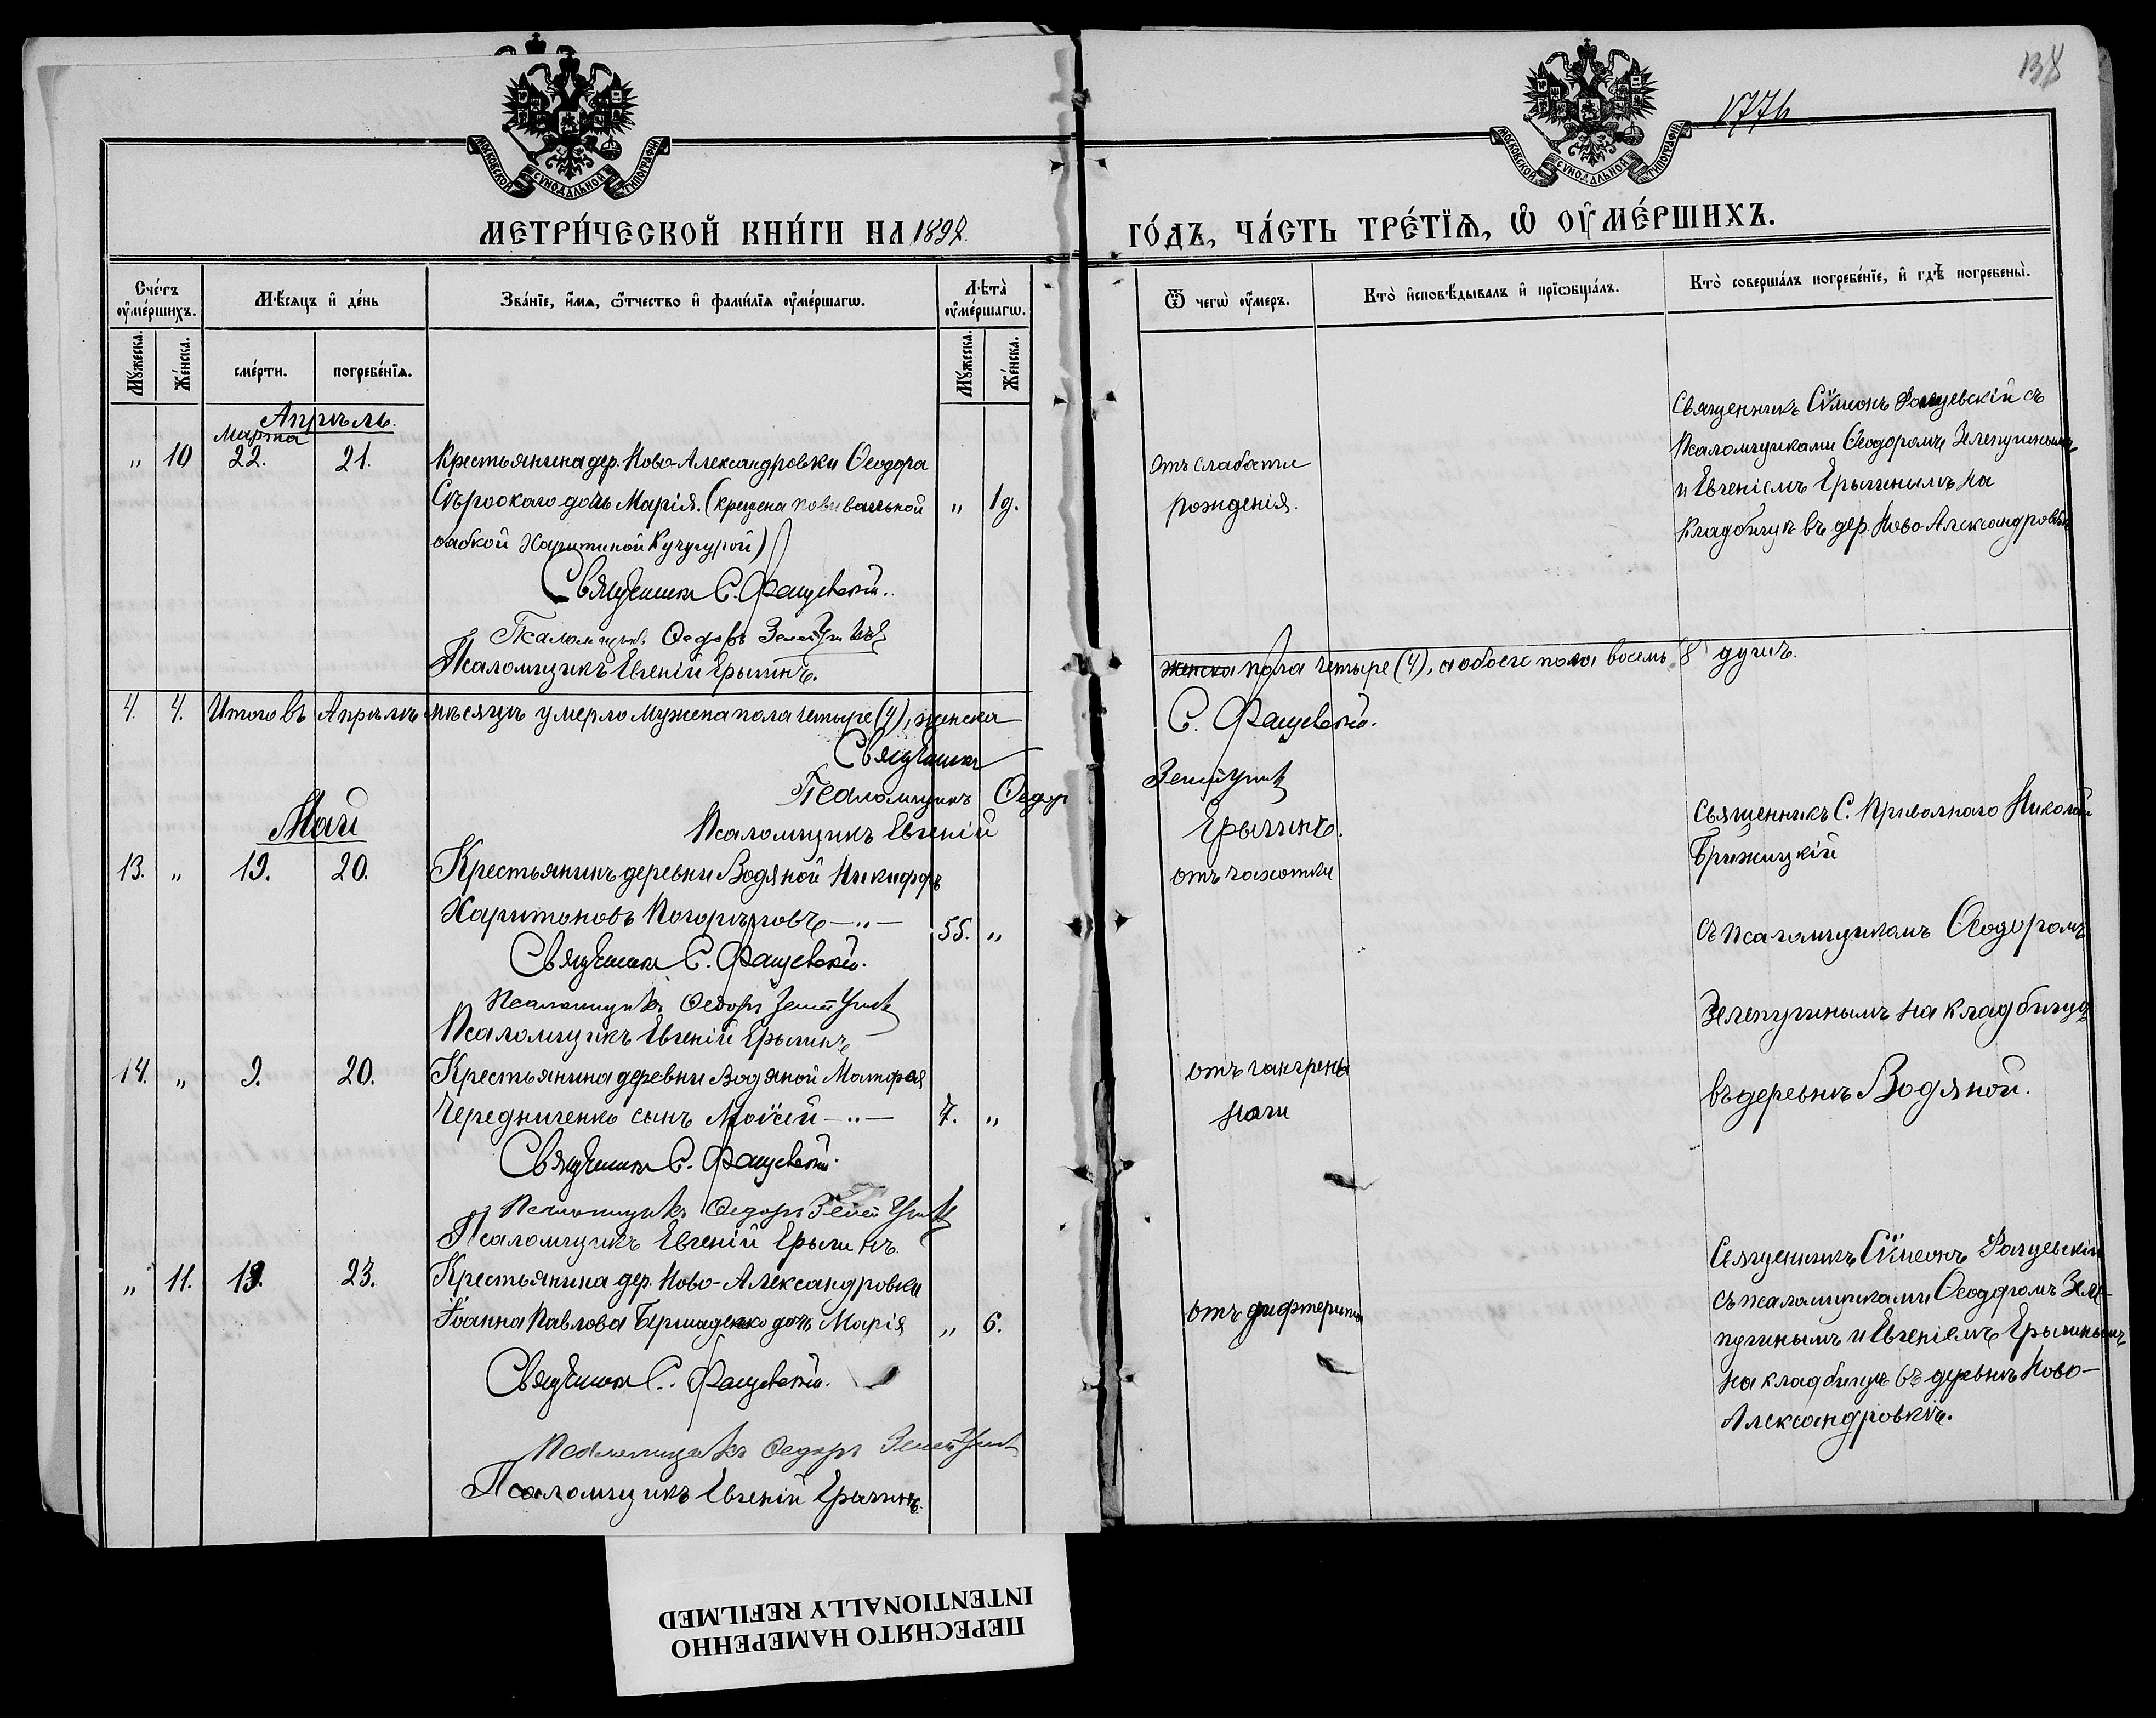 138
1776
МОСКОВСКОЙ СѴНОДАЛЬНОЙ ТИПОГРАФІИ
МОСКОВСКОЙ СѴНОДАЛЬНОЙ ТИПОГРАФІИ
МЕТРИ́ЧЕСКОЙ КНИ́ГИ НА 1892.
ГО́ДЪ, ЧА́СТЬ ТРЕ́ТЇѦ, Ѡ ОУМЕ́РШИХЪ.
Сче́тъ оуме́ршихъ.
Мѣ́сяцъ и де́нь
Зва́нїе, и́мя, ѻ҆́тчество и фами́лїя оуме́ршагѡ.
Лѣта̀ оуме́ршагѡ.
Ѿ чегѡ̀ оу́меръ.
Кто̀ и҆сповѣ́дывалъ и прїѡбща́лъ.
Кто̀ соверша́лъ погребе́нїе, и гдѣ̀ погребены̀.
Му́жеска. Же́нска. сме́рти. погребе́нїя. Му́жеска. Же́нска.
Апрѣль.
Марта
„ 10 22. 21. Крестьянина дер. Ново-Александровки Ѳеодора
Сѣроокаго дочь Марія. (крещена повивальной „ 1д.
бабкой Харитиной Кучугурой)
Священникъ С. Фащевскій.
Псаломщикъ Ѳедоръ Зелепугинъ
Псаломщикъ Евгеній Ерыгинъ.
отъ слабости
рожденія.
Священникъ Сѵмеонъ Фащевскій съ
Псаломщиками Ѳеодоромъ Зелепугинымъ
и Евгеніемъ Ерыгинымъ на
Кладбищѣ въ дер. Ново Александровкѣ
4. 4. Итого въ Апрѣлѣ мѣсяцѣ умерло мужеска пола четыре (4), женска
женска пола четыре (4), а обоего пола восемь 8 душъ.
Священникъ С. Фащевскій.
Псаломщикъ Ѳедоръ Зелепугинъ
Псаломщикъ Евгеній Ерыгинъ.
Май
13. „ 19. 20. Крестьянинъ деревни Водяной Никифоръ
Харитоновъ Погорѣловъ —„— 55. „
Священникъ С. Фащевскій.
Псаломщикъ Ѳедоръ Зелепугинъ
Псаломщикъ Евгеній Ерыгинъ
отъ чахотки
Священникъ С. Привольнаго Николай
Брижицкій
съ псаломщикомъ Ѳеодоромъ
Зелепугинымъ на кладбищѣ
въ деревнѣ Водяной.
14. „ 9. 20. Крестьянина деревни Водяной Матфея
Чередниченко сынъ Моѵсей —„— 7. „
Священникъ С. Фащевскій.
Псаломщикъ Ѳедоръ Зелепугинъ
Псаломщикъ Евгеній Ерыгинъ.
отъ гангрены
ноги
„ 11. 19. 23. Крестьянина дер. Ново-Александровки
Іоанна Павлова дочь Марія „ 6.
Священникъ С. Фащевскій.
Псаломщикъ Ѳедоръ Зелепугинъ
Псаломщикъ Евгеній Ерыгинъ.
отъ дифтерита
Священникъ Сѵмеонъ Фащевскій
съ псаломщиками Ѳеодоромъ Зеле-
пугинымъ и Евгеніемъ Ерыгинымъ
на кладбищѣ въ деревнѣ Ново-
Александровкѣ.
ПЕРЕСНЯТО НАМЕРЕННО
INTENTIONALLY REFILMED